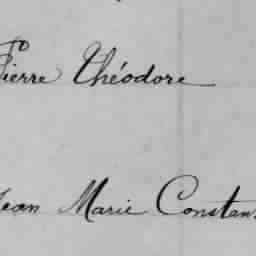 Pierre Théodore
Jean Marie Constan